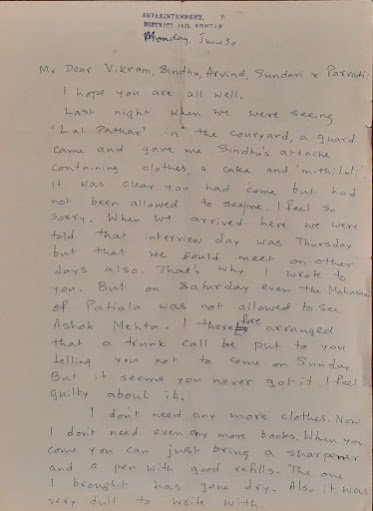 SUPERINTENDENT,
DISTRICT JAIL ROHTAK
Monday, June 30
My Dear Vikram, Sindhu, Arvind, Sundari & Parvati,
I hope you are all well.
Last night when we were seeing
'Lal Pathar' in the couryard, a guard
came and gave me Sindhu's attache
containing clothes, a cake and 'mithi loli'.
It was clear you had come but had
not been allowed to see me. I feel so
sorry. When we arrived here we were
told that interview day was Thursday
but that we could meet on other
days also. That's why I wrote to
you. But on Saturday even the Maharani
of Patiala was not allowed to see
Ashok Mehta. I therefore arranged
that a trunk call be put to you
telling you not to come on Sunday.
But it seems you never got it. I feel
guilty about it.
I don't need any more clothes. Now
I don't need even any more books. When you
come you can just bring a sharpener
and a pen with good refills. The one
I brought has gone dry. Also it was
very dull to write with.